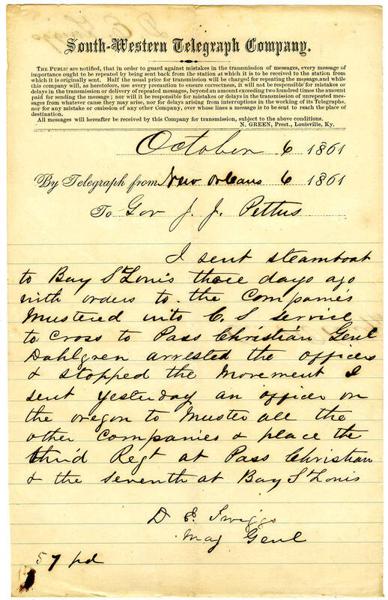 South-Western Telegraph Company.
THE PUBLIC are notified, that in order to guard against mistakes in the transmission of messages, every message of
importance ought to be repeated by being sent back from the station at which it is to be received to the station from
which it is originally sent. Half the usual price for transmission will be charged for repeating the message, and while
this company will, as heretofore, use every precaution to ensure correctness, it will not be responsible for mistakes or
delays in the transmission or delivery of repeated messages, beyond an amount exceeding two hundred times the amount
paid for sending the message; nor will it be responsible for mistakes or delays in the transmission of unrepeated mes-
sages from whatever cause they may arise, nor for delays arising from interruptions in the working of its Telegraphs,
nor for any mistake or omission of any other Company, over whose lines a message is to be sent to reach the place of
destination.
All messages will hereafter be received by this Company for transmission, subject to the above conditions.
N. GREEN, Prest., Louisville, Ky.
October 6 1861
By Telegraph from New Orleans 6 1861
To Gov J. J. Pettus
I sent steamboat
to Bay St Louis three days ago
with orders to the Companies
Mustered into C. S service
to cross to Pass Christian Genl
Dahlgren arrested the officers
& stopped the movement I
sent yesterday an officer on
the oregon to Muster all the
other Companies & place the
third Regt at Pass Christian
& the Seventh at Bay St Louis
D E. Twiggs
Maj Genl
57 pd